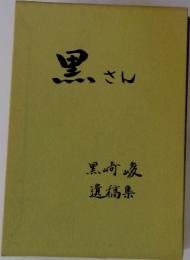 黒さん
黒崎峻
遺稿集